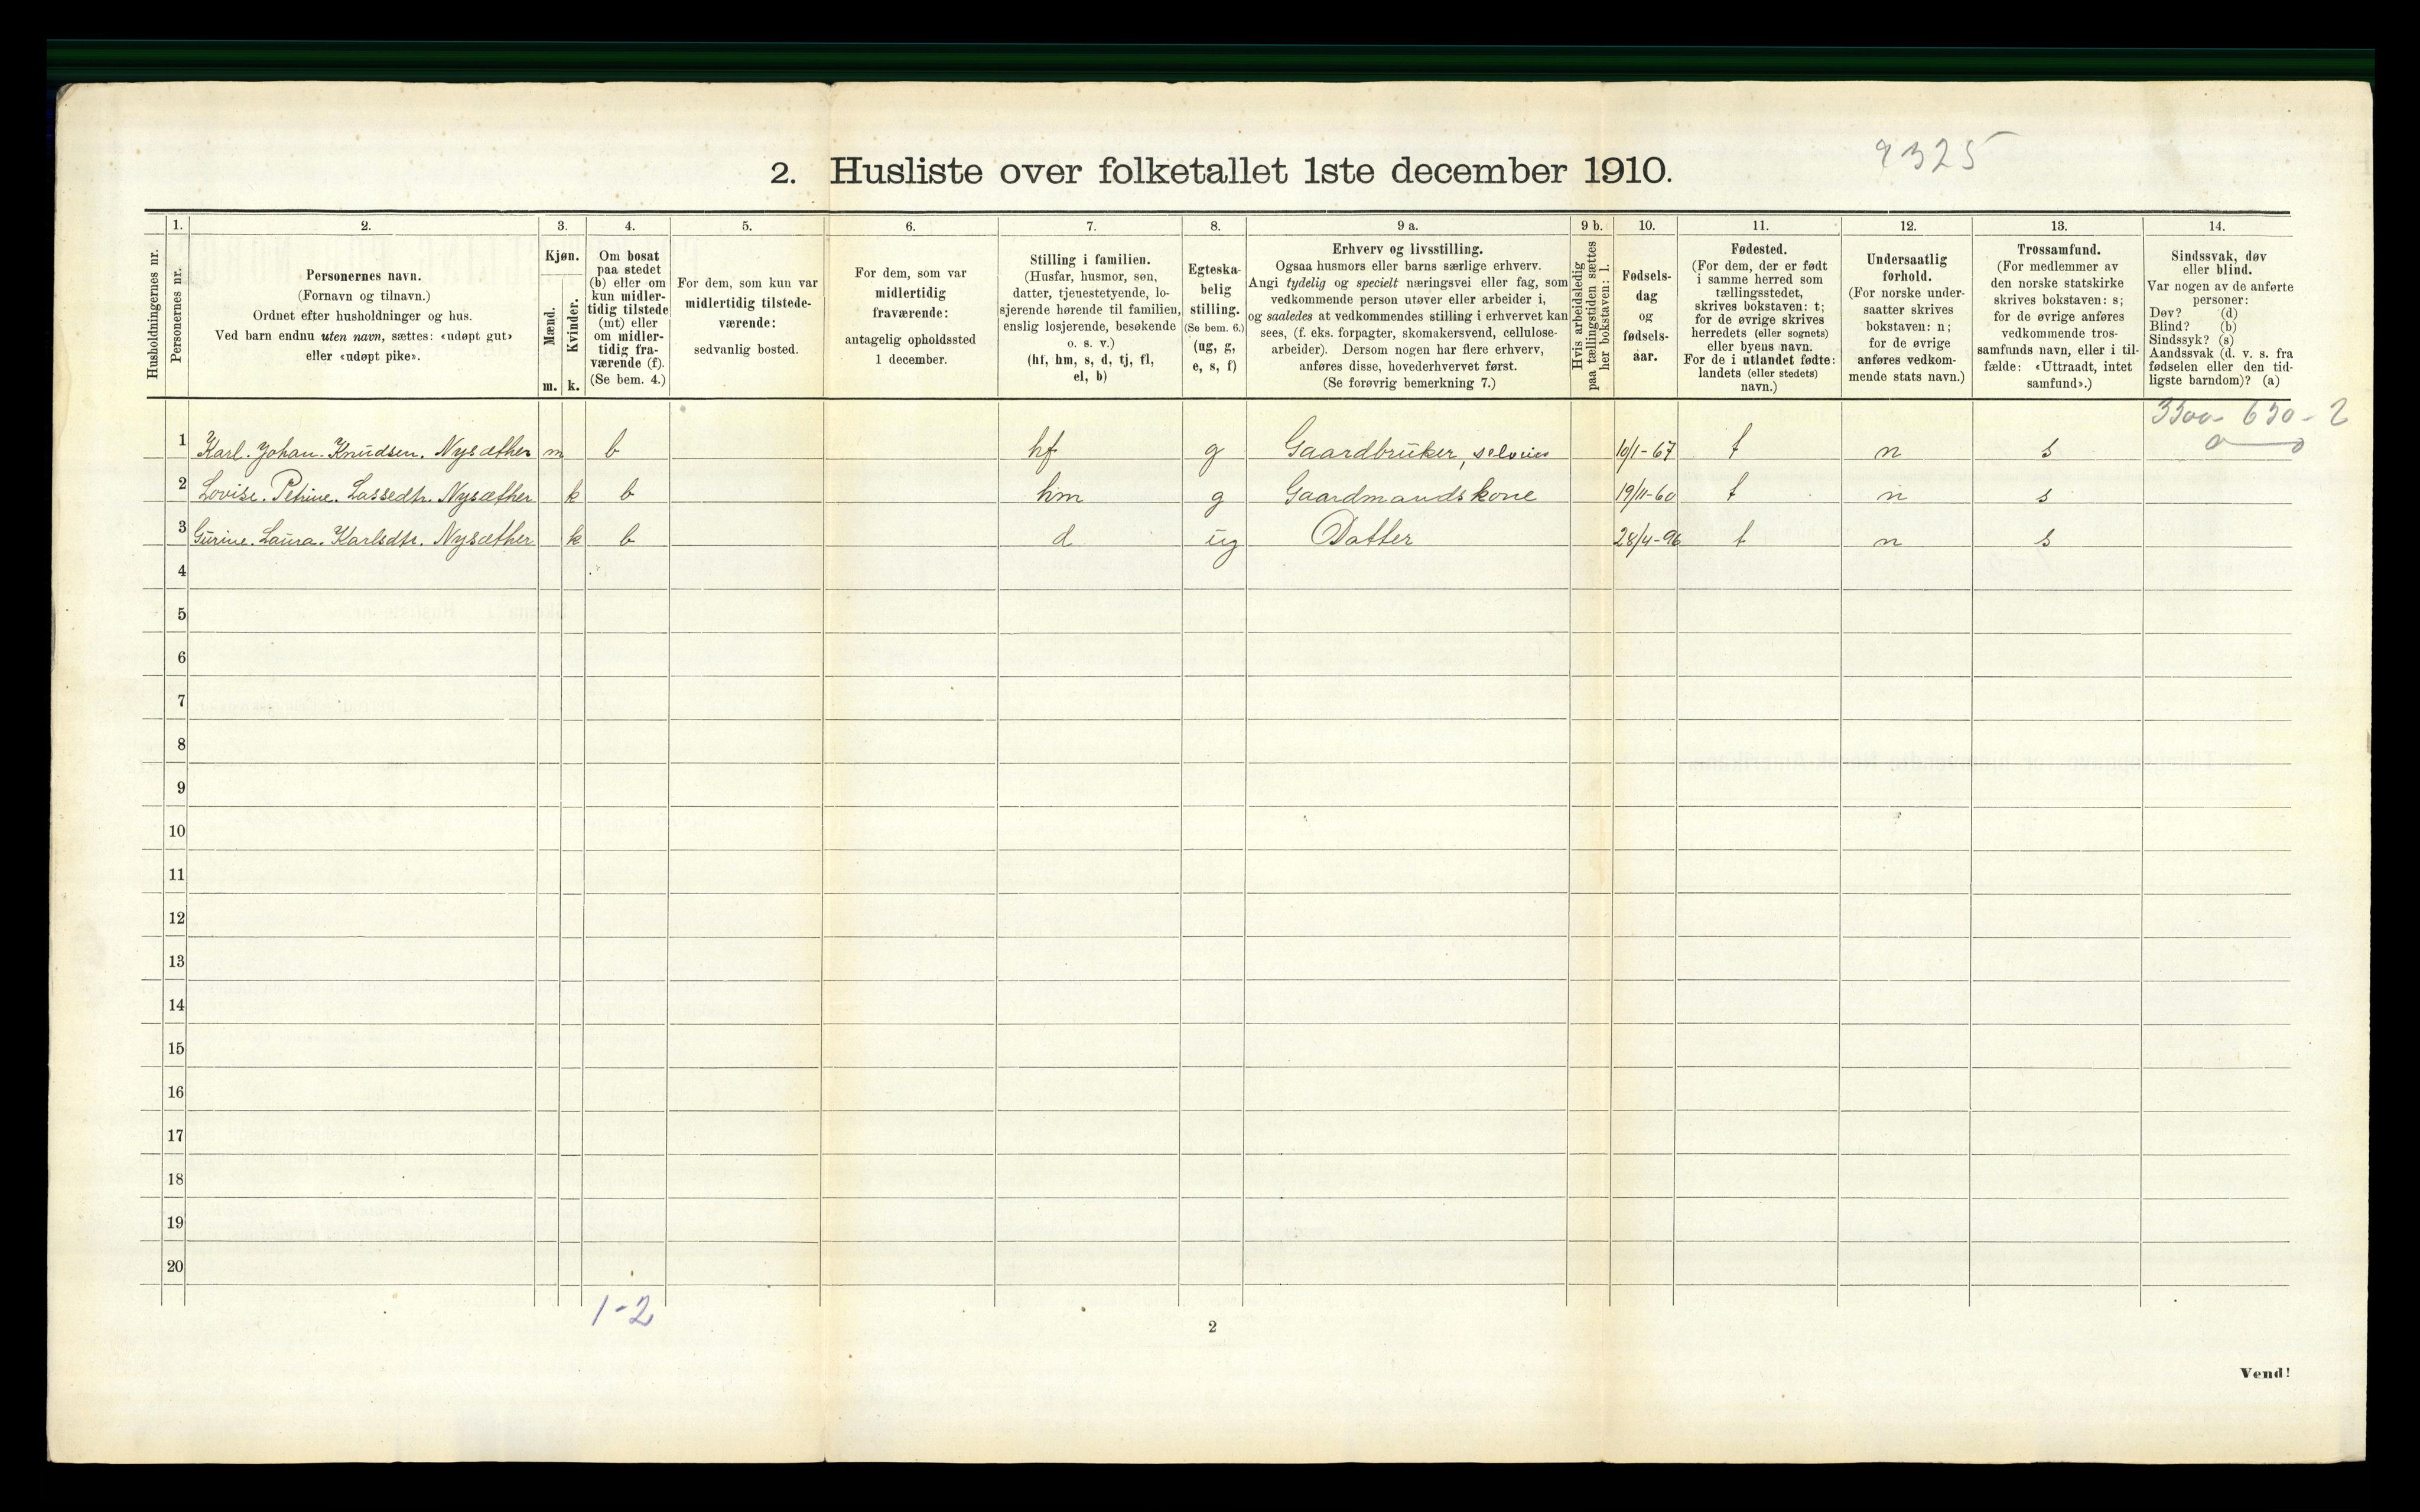 9325
2. Husliste over folketallet 1ste december 1910.
Husholdningernes nr.
1.
Personernes nr.
2.
Personernes navn.
(Fornavn og tilnavn.)
Ordnet efter husholdninger og hus.
Ved barn endnu uten navn, sættes: «udøpt gut»
eller «udøpt pike».
3.
Kjøn.
Mænd.
Kvinder.
m. k.
4.
Om bosat
paa stedet
(b) eller om
kun midler-
tidig tilstede
(mt) eller
om midler-
tidig fra-
værende (f).
(Se bem. 4.)
5.
For dem, som kun var
midlertidig tilstede-
værende:
sedvanlig bosted.
6.
For dem, som var
midlertidig
fraværende:
antagelig opholdssted
1 december.
7.
Stilling i familien.
(Husfar, husmor, søn,
datter, tjenestetyende, lo-
sjerende hørende til familien,
enslig losjerende, besøkende
o. s. v.)
(hf, hm, s, d, tj, fl,
el, b)
8.
Egteska-
belig
stilling.
(Se bem. 6.)
(ug, g,
e, s, f)
9 a.
Erhverv og livsstilling.
Ogsaa husmors eller barns særlige erhverv.
Angi tydelig og specielt næringsvei eller fag, som
vedkommende person utøver eller arbeider i,
og saaledes at vedkommendes stilling i erhvervet kan
sees, (f. eks. forpagter, skomakersvend, cellulose-
arbeider). Dersom nogen har flere erhverv,
anføres disse, hovederhvervet først.
(Se forøvrig bemerkning 7.)
9 b.
Hvis arbeidsledig
paa tællingstiden sættes
her bokstaven: l.
10.
Fødsels-
dag
og
fødsels-
aar.
11.
Fødested.
(For dem, der er født
i samme herred som
tællingsstedet,
skrives bokstaven: t;
for de øvrige skrives
herredets (eller sognets)
eller byens navn.
For de i utlandet fødte:
landets (eller stedets)
navn.)
12.
Undersaatlig
forhold.
(For norske under-
saatter skrives
bokstaven: n;
for de øvrige
anføres vedkom-
mende stats navn.)
13.
Trossamfund.
(For medlemmer av
den norske statskirke
skrives bokstaven: s;
for de øvrige anføres
vedkommende tros-
samfunds navn, eller i til-
fælde: «Uttraadt, intet
samfund».)
14.
Sindssvak, døv
eller blind.
Var nogen av de anførte
personer:
Døv? (d)
Blind? (b)
Sindssyk? (s)
Aandssvak (d. v. s. fra
fødselen eller den tid-
ligste barndom)? (a)
3300 - 630 - 2
1 Karl. Johan. Knudsen. Nysæther m b hf g Gaardbruker, selveier 10/1-67 t n s
2 Lovise. Petrine. Lassedtr. Nysæther k b hm g Gaardmandskone 19/11-60 t n s
3 Gurine. Laura. Karlsdtr. Nysæther k b d ug Datter 28/4-96 t n s
4
5
6
7
8
9
10
11
12
13
14
15
16
17
18
19
20
1-2
2
Vend!